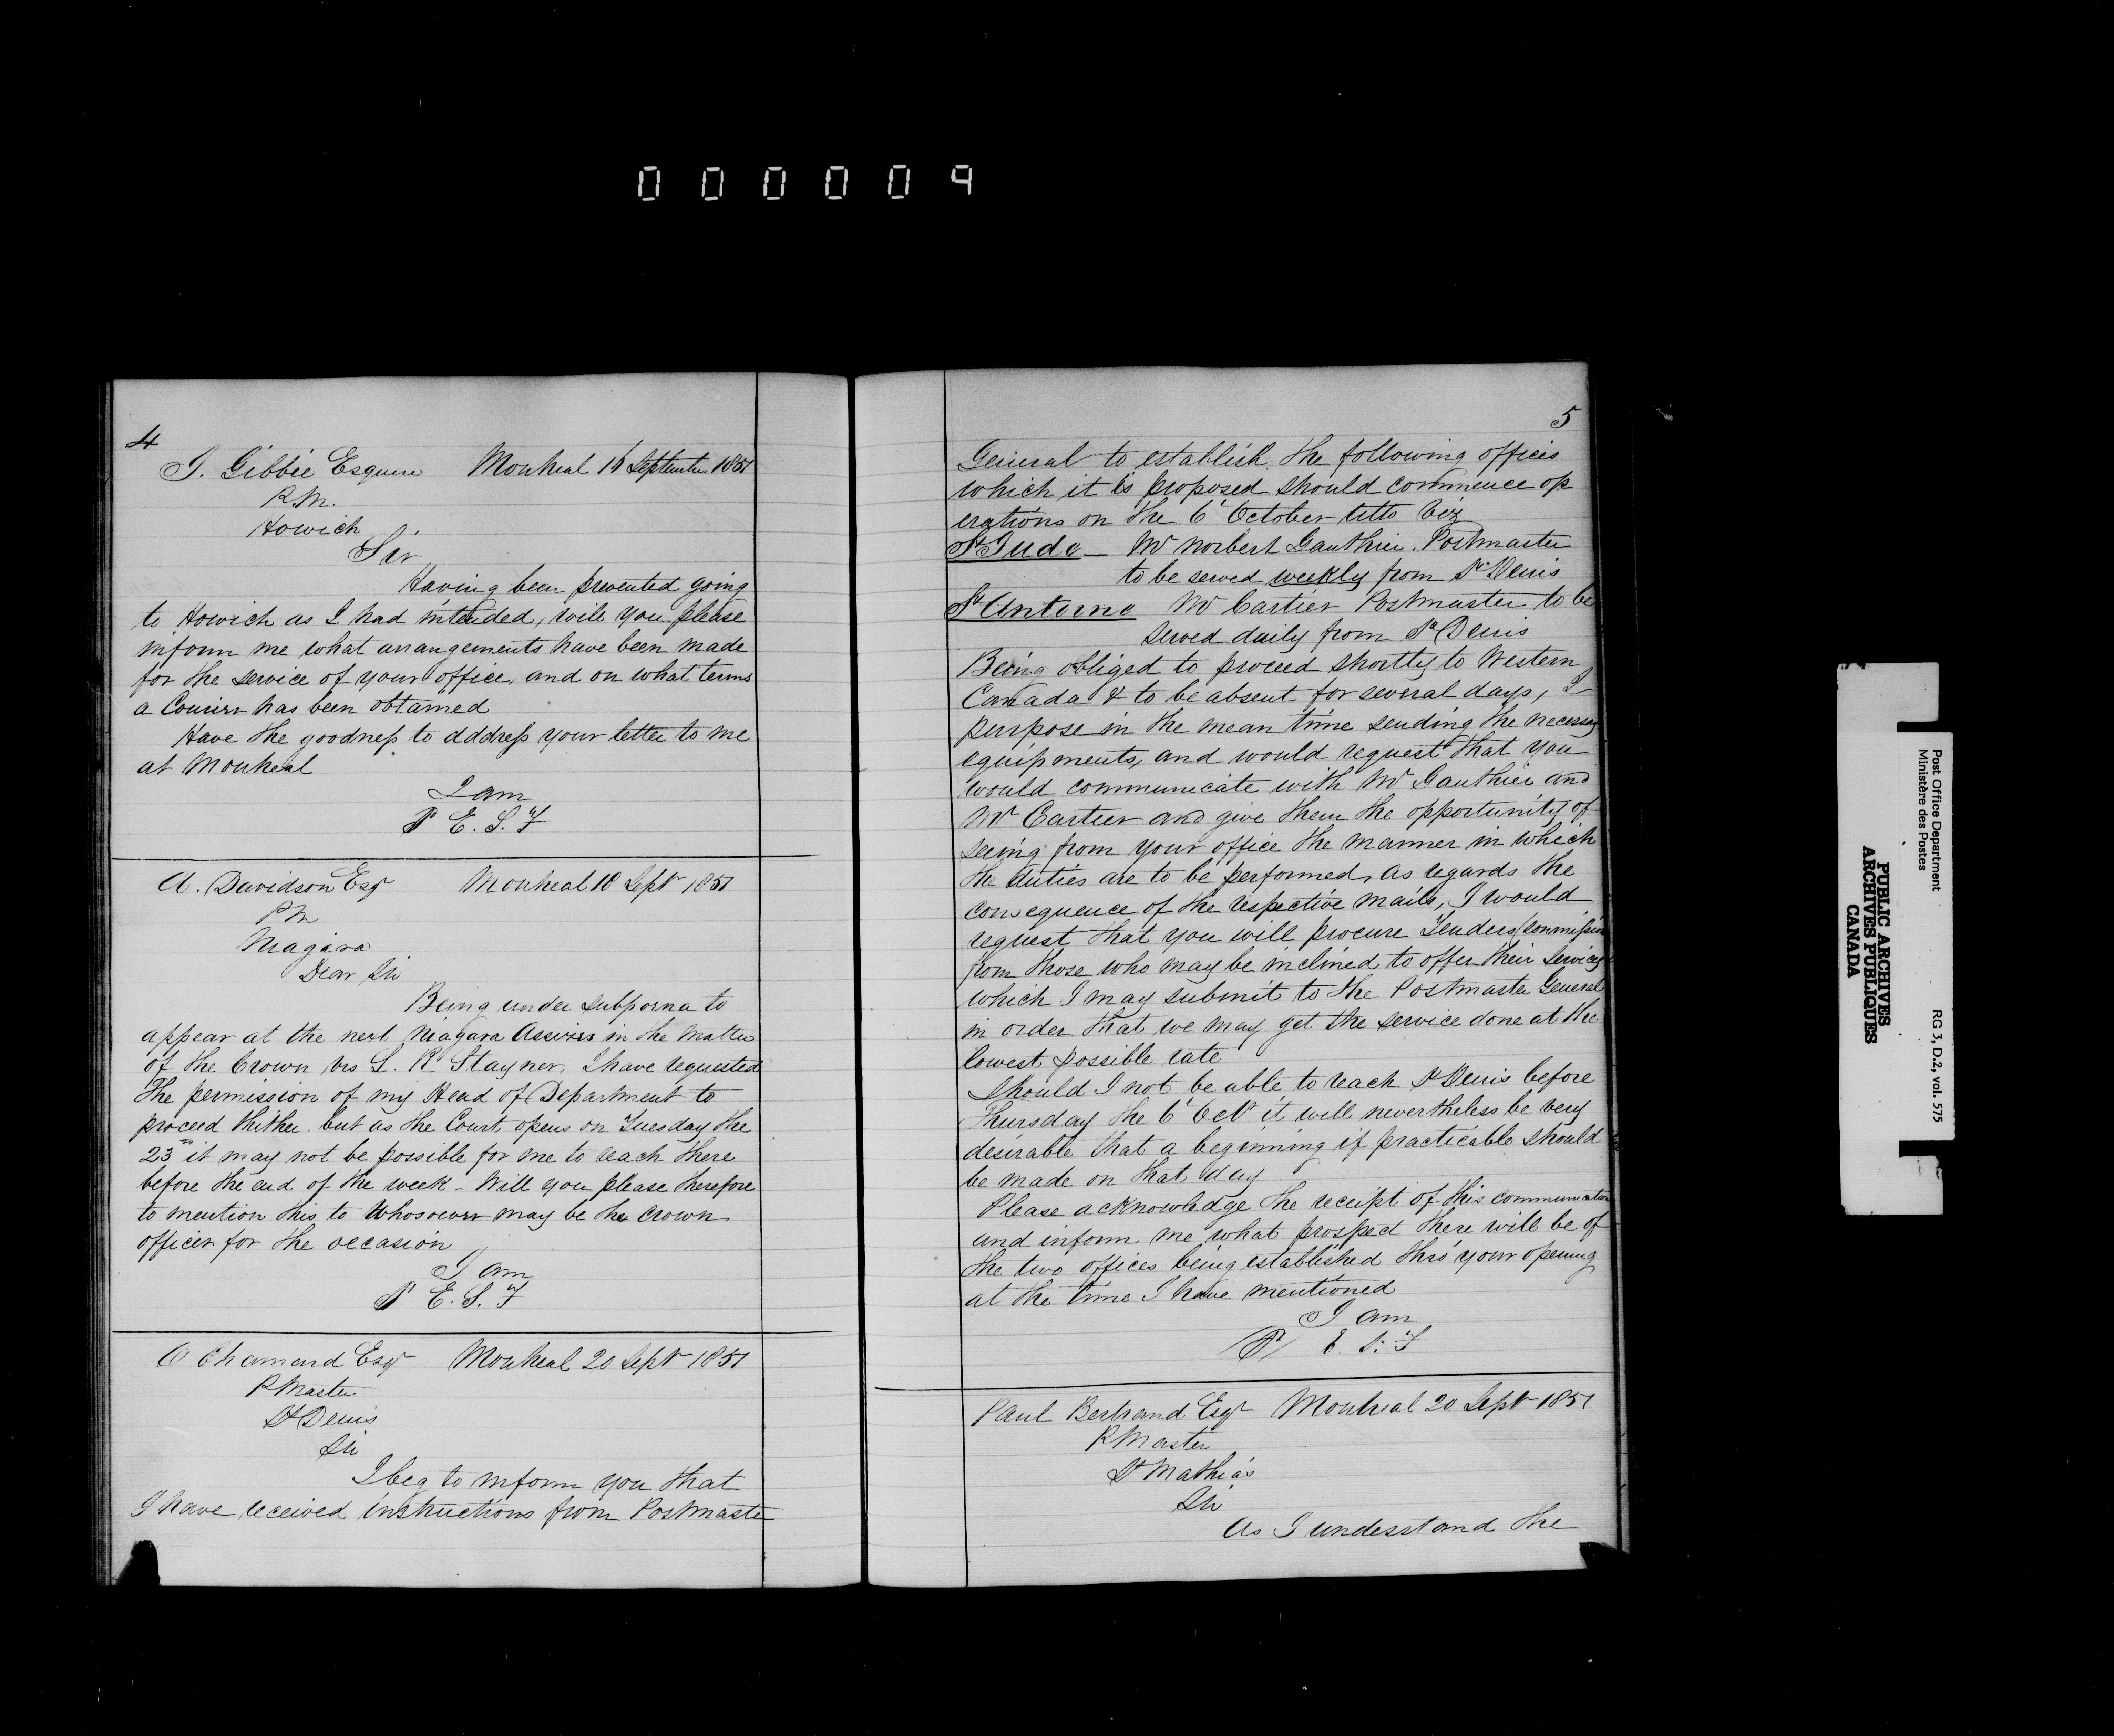 000009
4
J. Gibbie Esquire Montreal 16 September 1851
P.M.
Howich
Sir
Having been prevented going
to Howich as I had intended, will you please
inform me what arrangements have been made
for the service of your office, and on what terms
a Courier has been obtained
Have the goodness to address your letter to me
at Montreal
I am
P E. S. F
A. Davidson Esqr Montreal 18 Septr 1851
PM
Niagara
Dear Sir
Being under subporna to
appear at the next Niagara Assizes in the matter
of the Crown vrs S. R Stayner. I have requested
The permission of my Head of Department to
proceed thither. but as the Court opens on Tuesday the
23rd it may not be possible for me to reach there
before the end of the week - Will you please therefore
to mention this to Whosoever may be the crown
officer for the occasion
I am
P E. S. F
O Chamard Esqr Montreal 20 Septr 1851
PMaster
St Denis
Sir
I beg to inform you that
I have received instructions from Postmaster
5
General to establish the following offices
which it is proposed should commence op
erations on the 6t October
St Jude - Mr Norbert Gauthier. Postmaster
to be served weekly from St Denis
St Antoine Mr Cartier Postmaster to be
served daily from St Denis
Being obliged to proceed shortly to Western
Canada & to be absent for several days, I
purpose in the mean time sending the necessary
equipments, and would request that you
would communicate with Mr Gauthier and
Mr Cartier and give them the opportunity of
seeing from your office the manner in which
the duties are to be performed, as regards the
consequence of the respective mails, I would
request that you will procure Tenders
from those who may be inclined to offer their services
which I may submit to the Postmaster General
in order that we may get the service done at the
lowest possible rate
Should I not be able to reach St Denis before
Thursday the 6t Octr it will nevertheless be very
desirable that a beginning if practicable should
be made on that day
Please acknowledge the receipt of this communication
and inform me what prospect there will be of
the two offices being established thro your opening
at the time I have mentioned
I am
P E. S. F
Paul Bertrand Esqr Montreal 20 Septr 1851
PMaster
St Mathias
Sir
As I understand the
Post Office Department
Ministère des Postes
RG 3, D.2, vol. 575
PUBLIC ARCHIVES
ARCHIVES PUBLIQUES
CANADA